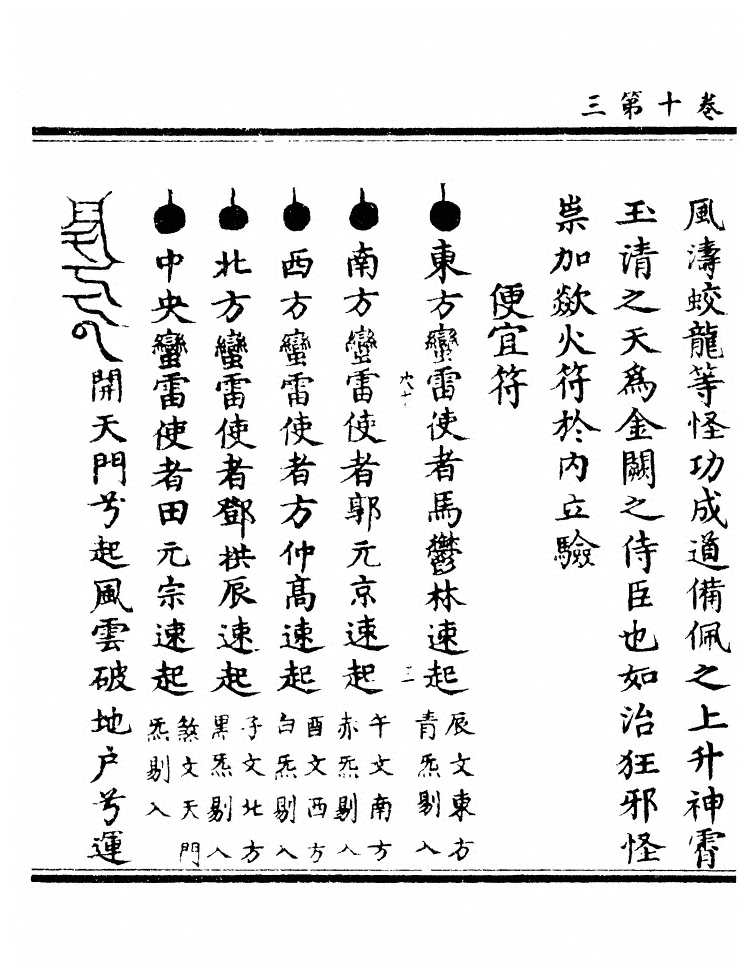 卷十第三
風濤蛟龍等怪功成道備佩之上升神霄
玉清之天爲金闕之侍臣也如治狂邪怪
祟加歘火符於內立驗
便宜符
東方蠻雷使者馬鬱林速起
辰文東方
青炁剔入
南方蠻雷使者郭元京速起
午文南方
赤炁剔入
西方蠻雷使者方仲高速起
酉文西方
白炁剔入
北方蠻雷使者鄧拱辰速起
子文北方
黑炁剔入
中央蠻雷使者田元宗速起
煞文天門
炁剔入
開天門兮起風雲破地户兮運